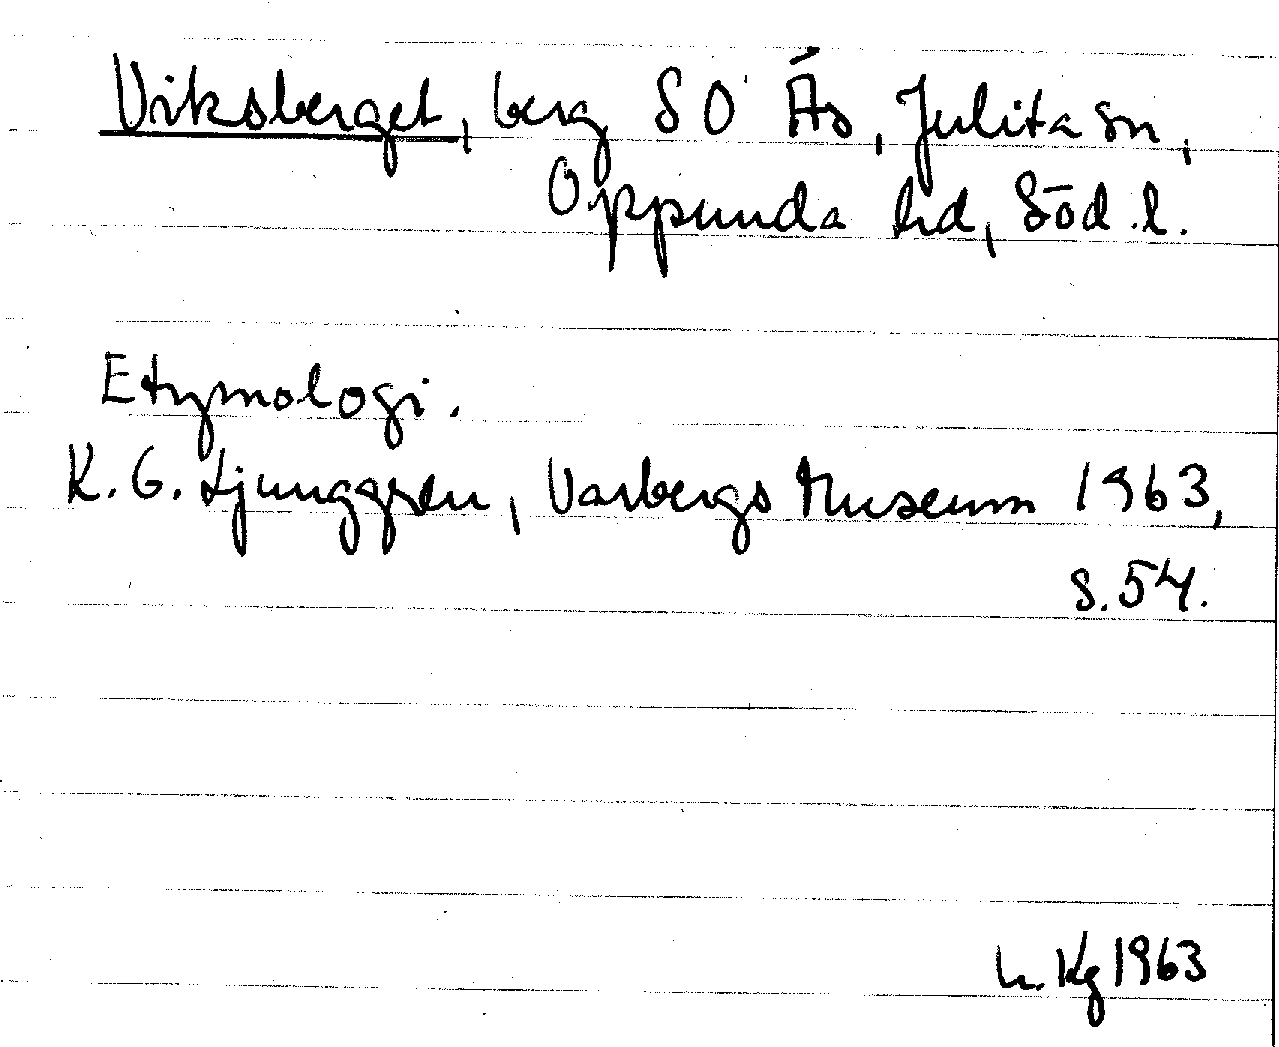 Viksberget, berg SO Ås, Julita sn,
Oppunda hd, Söd.l.
Etymologi.
K. G. Ljunggren, Varbergs Museum 1963,
s. 54.
Kg 1963